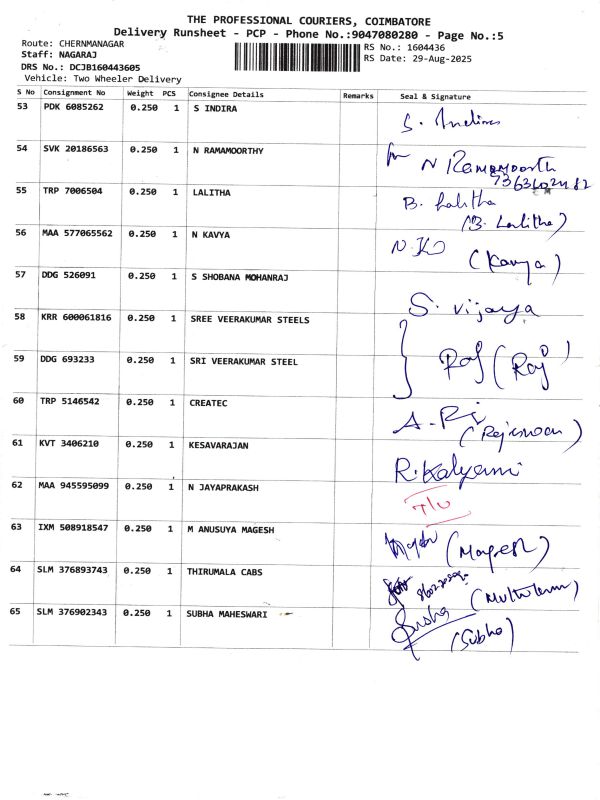 THE PROFESSIONAL COURIERS, COIMBATORE
Delivery Runsheet - PCP - Phone No.:9047080280 - Page No.:5
Route: CHERNMANAGAR
Staff: NAGARAJ
DRS No.: DCJB160443605
Vehicle: Two Wheeler Delivery
RS No.: 1604436
RS Date: 29-Aug-2025
S No Consignment No Weight PCS Consignee Details Remarks Seal & Signature
53 PDK 6085262 0.250 1 S INDIRA S. Indira
54 SVK 20186563 0.250 1 N RAMAMOORTHY for N Ramamoorth
55 TRP 7006504 0.250 1 LALITHA B. Lalitha
(B. Lalitha)
56 MAA 577065562 0.250 1 N KAVYA (Kavya)
57 DDG 526091 0.250 1 S SHOBANA MOHANRAJ S. vijaya
58 KRR 600061816 0.250 1 SREE VEERAKUMAR STEELS
59 DDG 693233 0.250 1 SRI VEERAKUMAR STEEL Raj (Raj)
60 TRP 5146542 0.250 1 CREATEC
61 KVT 3406210 0.250 1 KESAVARAJAN R. Kalyani
62 MAA 945595099 0.250 1 N JAYAPRAKASH T/U
63 IXM 508918547 0.250 1 M ANUSUYA MAGESH (Magesh)
64 SLM 376893743 0.250 1 THIRUMALA CABS
65 SLM 376902343 0.250 1 SUBHA MAHESWARI Subha
(Subha)